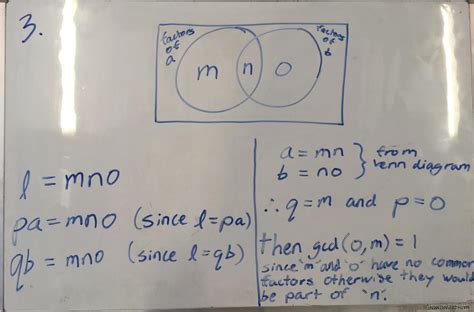 3.
factors
of
a
factors
of
b
m n o
l = mno
pa = mno (since l = pa)
qb = mno (since l = qb)
a = mn } from
b = no } venn diagram
∴ q = m and p = o
then gcd (o, m) = 1
since 'm' and 'o' have no common
factors otherwise they would
be part of 'n'.